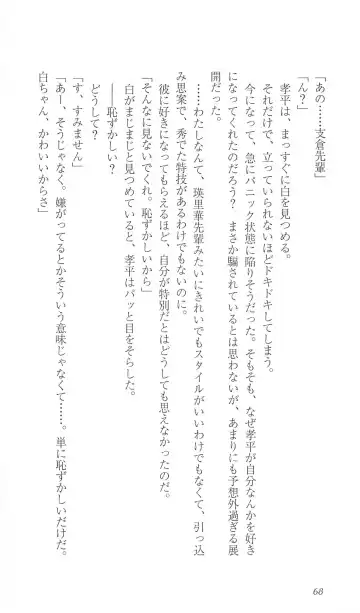 「あの……支倉先輩」
「ん？」
孝平は、まっすぐに白を見つめる。
それだけで、立っていられないほどドキドキしてしまう。
今になって、急にパニック状態に陥りそうだった。そもそも、なぜ孝平が自分なんかを好き
になってくれたのだろう？　まさか騙されているとは思わないが、あまりにも予想外過ぎる展
開だった。
……わたしなんて、瑛里華先輩みたいにきれいでもスタイルがいいわけでもなくて、引っ込
み思案で、秀でた特技があるわけでもないのに。
彼に好きになってもらえるほど、自分が特別だとはどうしても思えなかったのだ。
「そんなに見ないでくれ。恥ずかしいから」
白がまじまじと見つめていると、孝平はパッと目をそらした。
――恥ずかしい？
どうして？
「す、すみません」
「あー、そうじゃなく。嫌がってるとかそういう意味じゃなくて……。単に恥ずかしいだけだ。
白ちゃん、かわいいからさ」
68